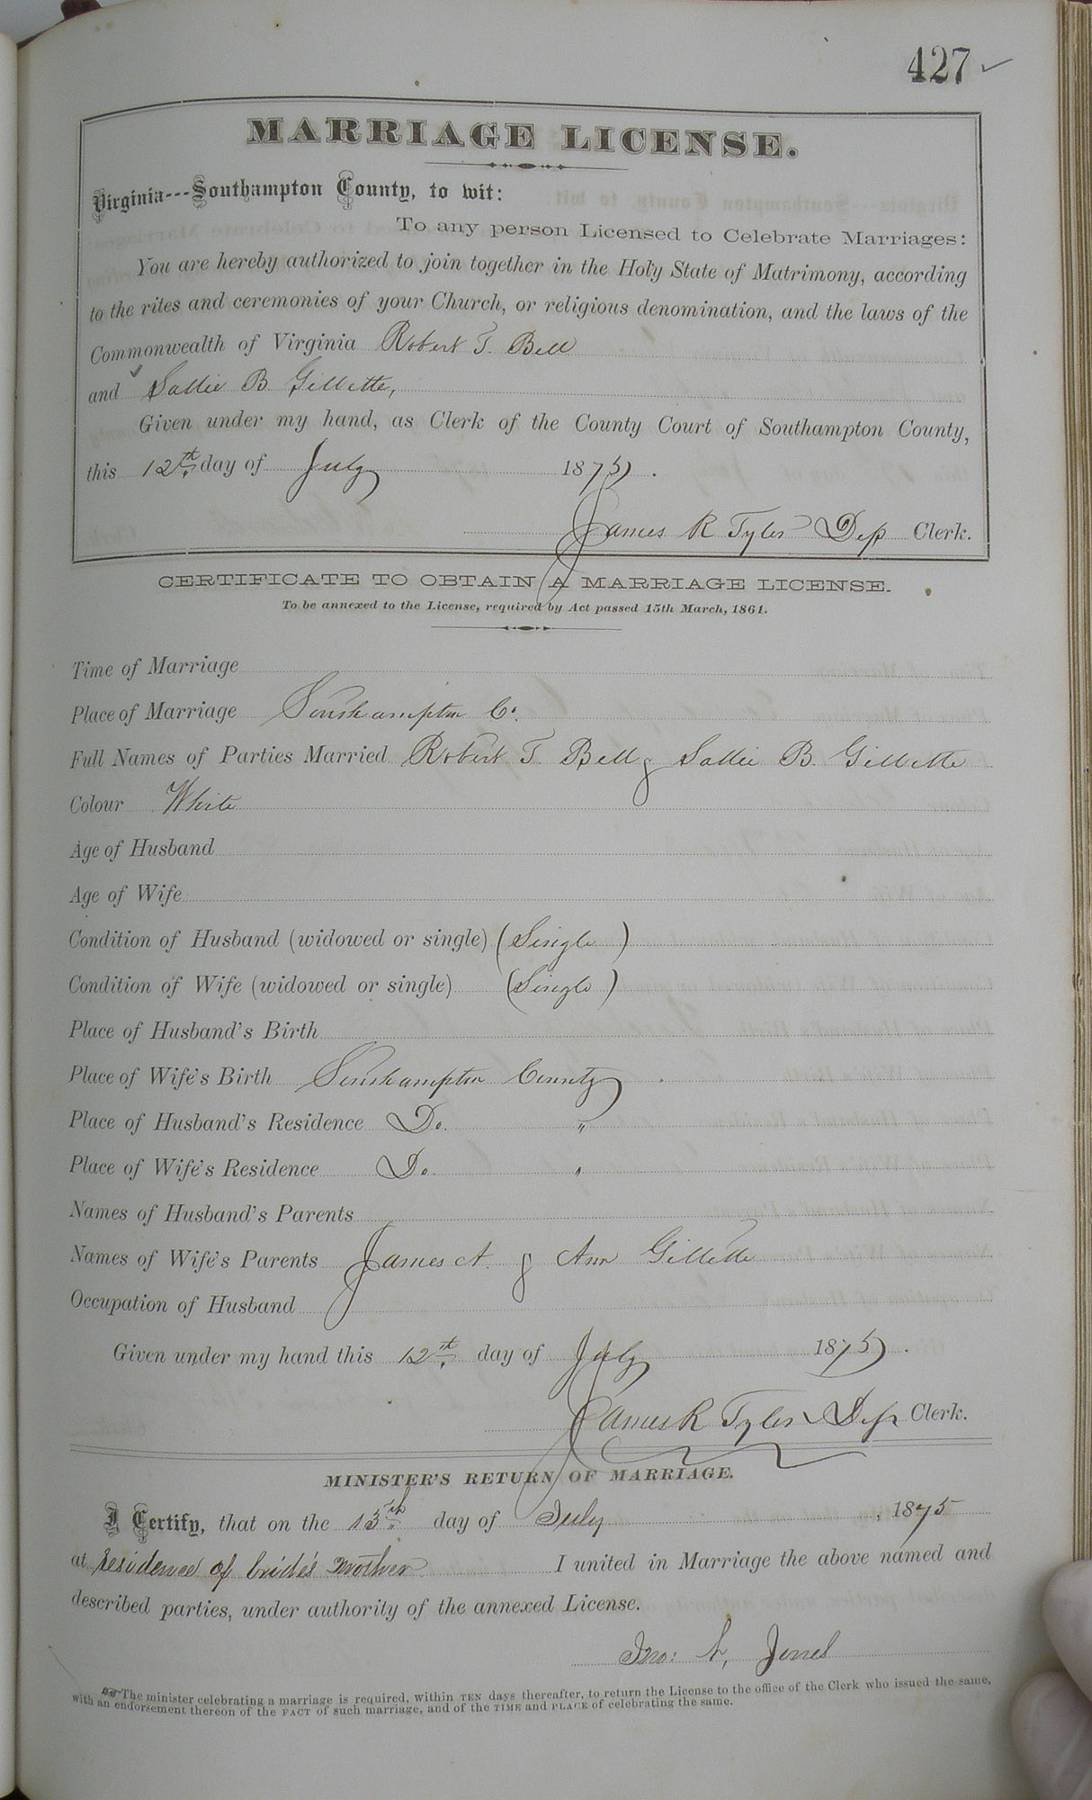 427 ✓
MARRIAGE LICENSE.
Virginia---Southampton County, to wit:
To any person Licensed to Celebrate Marriages:
You are hereby authorized to join together in the Holy State of Matrimony, according
to the rites and ceremonies of your Church, or religious denomination, and the laws of the
Commonwealth of Virginia Robert T. Bell
and Sallie B. Gillette,
Given under my hand, as Clerk of the County Court of Southampton County,
this 12th day of July 1875.
James R Tyler Dep Clerk.
CERTIFICATE TO OBTAIN A MARRIAGE LICENSE.
To be annexed to the License, required by Act passed 15th March, 1861.
Time of Marriage
Place of Marriage Southampton Co.
Full Names of Parties Married Robert T. Bell & Sallie B. Gillette
Colour White
Age of Husband
Age of Wife
Condition of Husband (widowed or single) (Single)
Condition of Wife (widowed or single) (Single)
Place of Husband's Birth
Place of Wife's Birth Southampton County
Place of Husband's Residence Do. "
Place of Wife's Residence Do. "
Names of Husband's Parents
Names of Wife's Parents James A. & Ann Gillette
Occupation of Husband
Given under my hand this 12th day of July 1875.
James R Tyler Dep Clerk.
MINISTER'S RETURN OF MARRIAGE.
I Certify, that on the 13th day of July, 1875
at residence of bride's mother I united in Marriage the above named and
described parties, under authority of the annexed License.
Jno: Jones
The minister celebrating a marriage is required, within TEN days thereafter, to return the License to the office of the Clerk who issued the same,
with an endorsement thereon of the FACT of such marriage, and of the TIME and PLACE of celebrating the same.